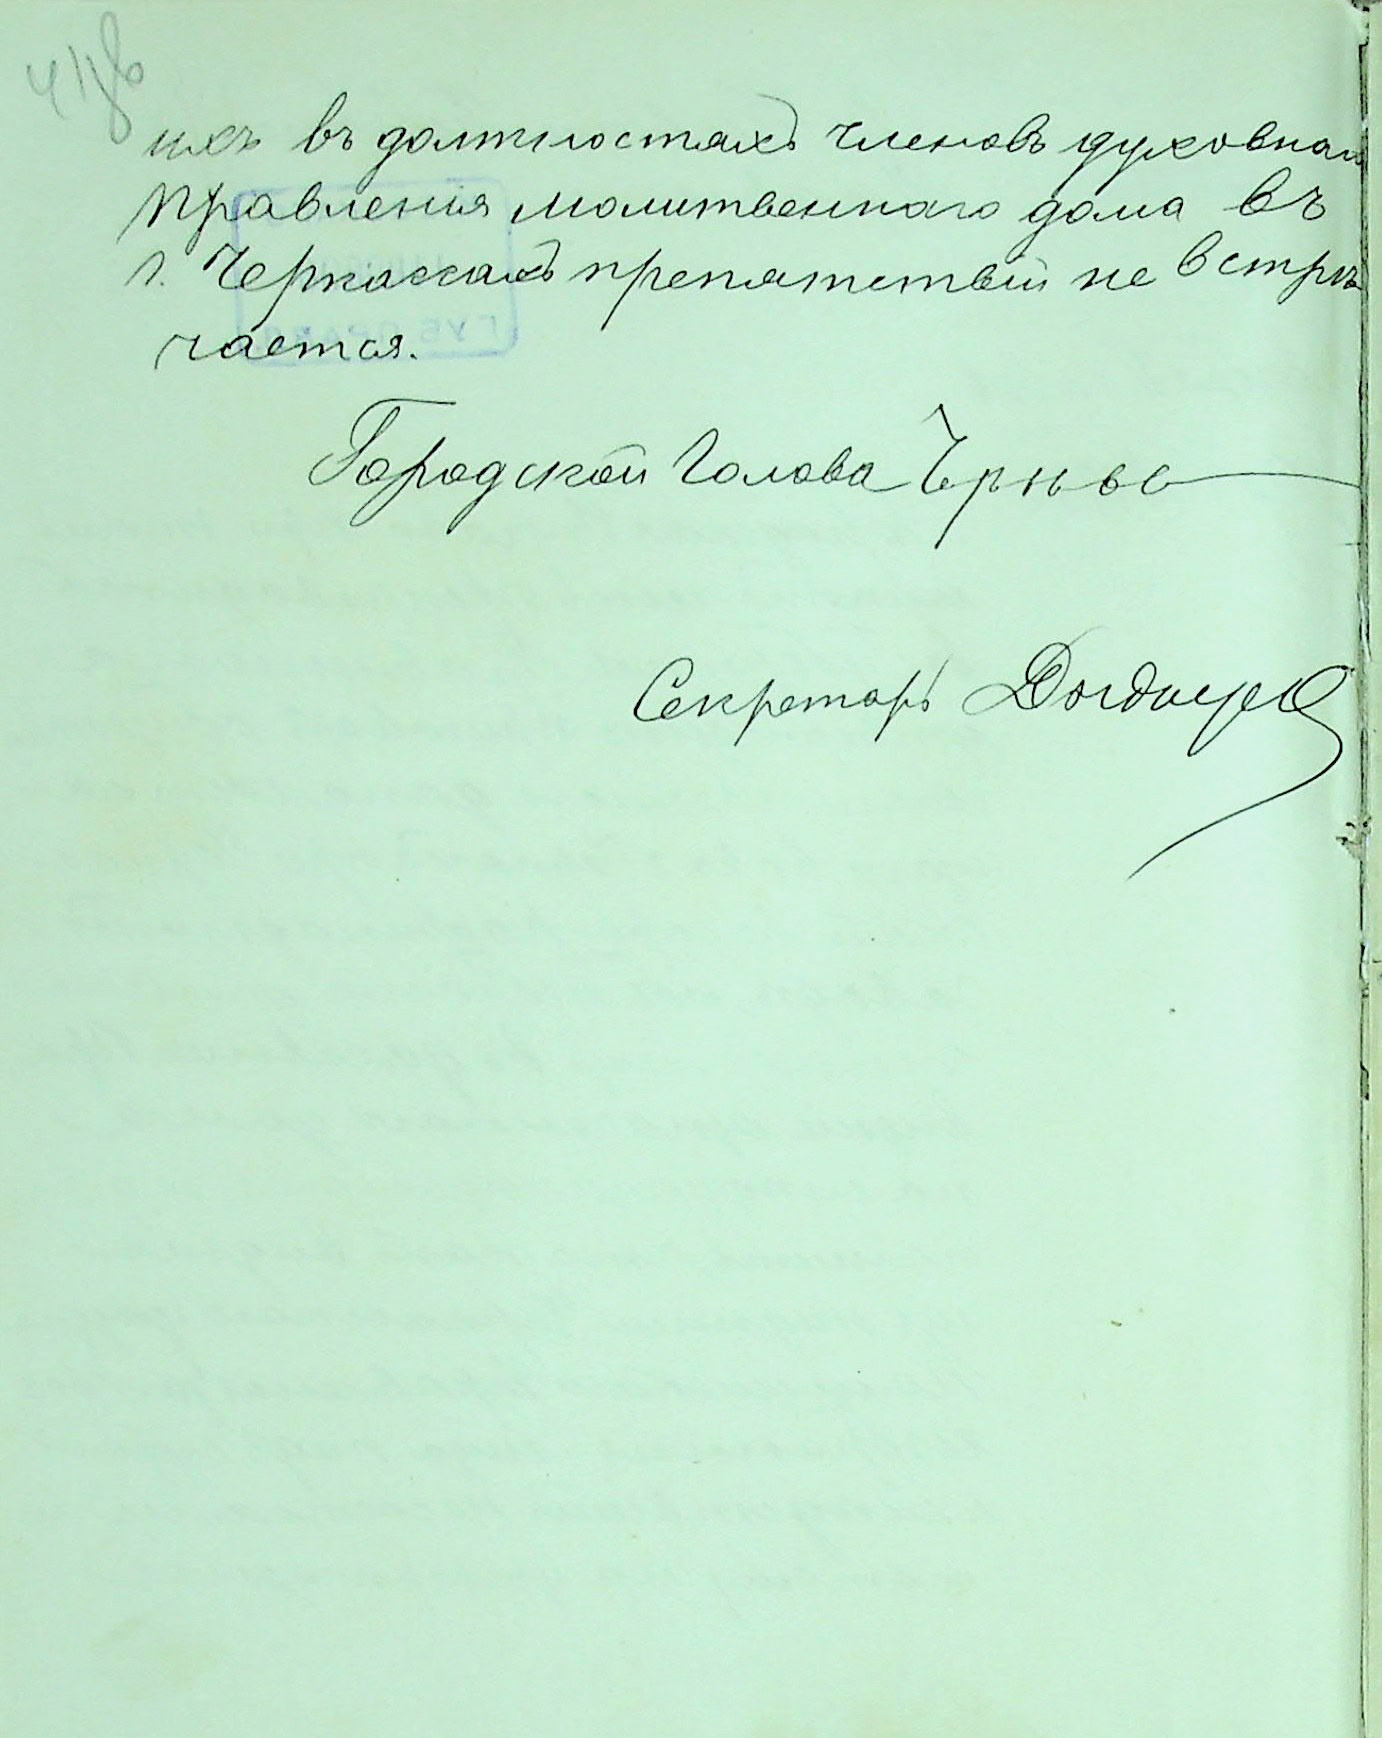 ихъ въ должностяхъ членовъ духовнаго
правленія молитвеннаго дома въ
г. Черкассахъ препятствій не встрѣ
чается.
Городской Голова
Секретарь